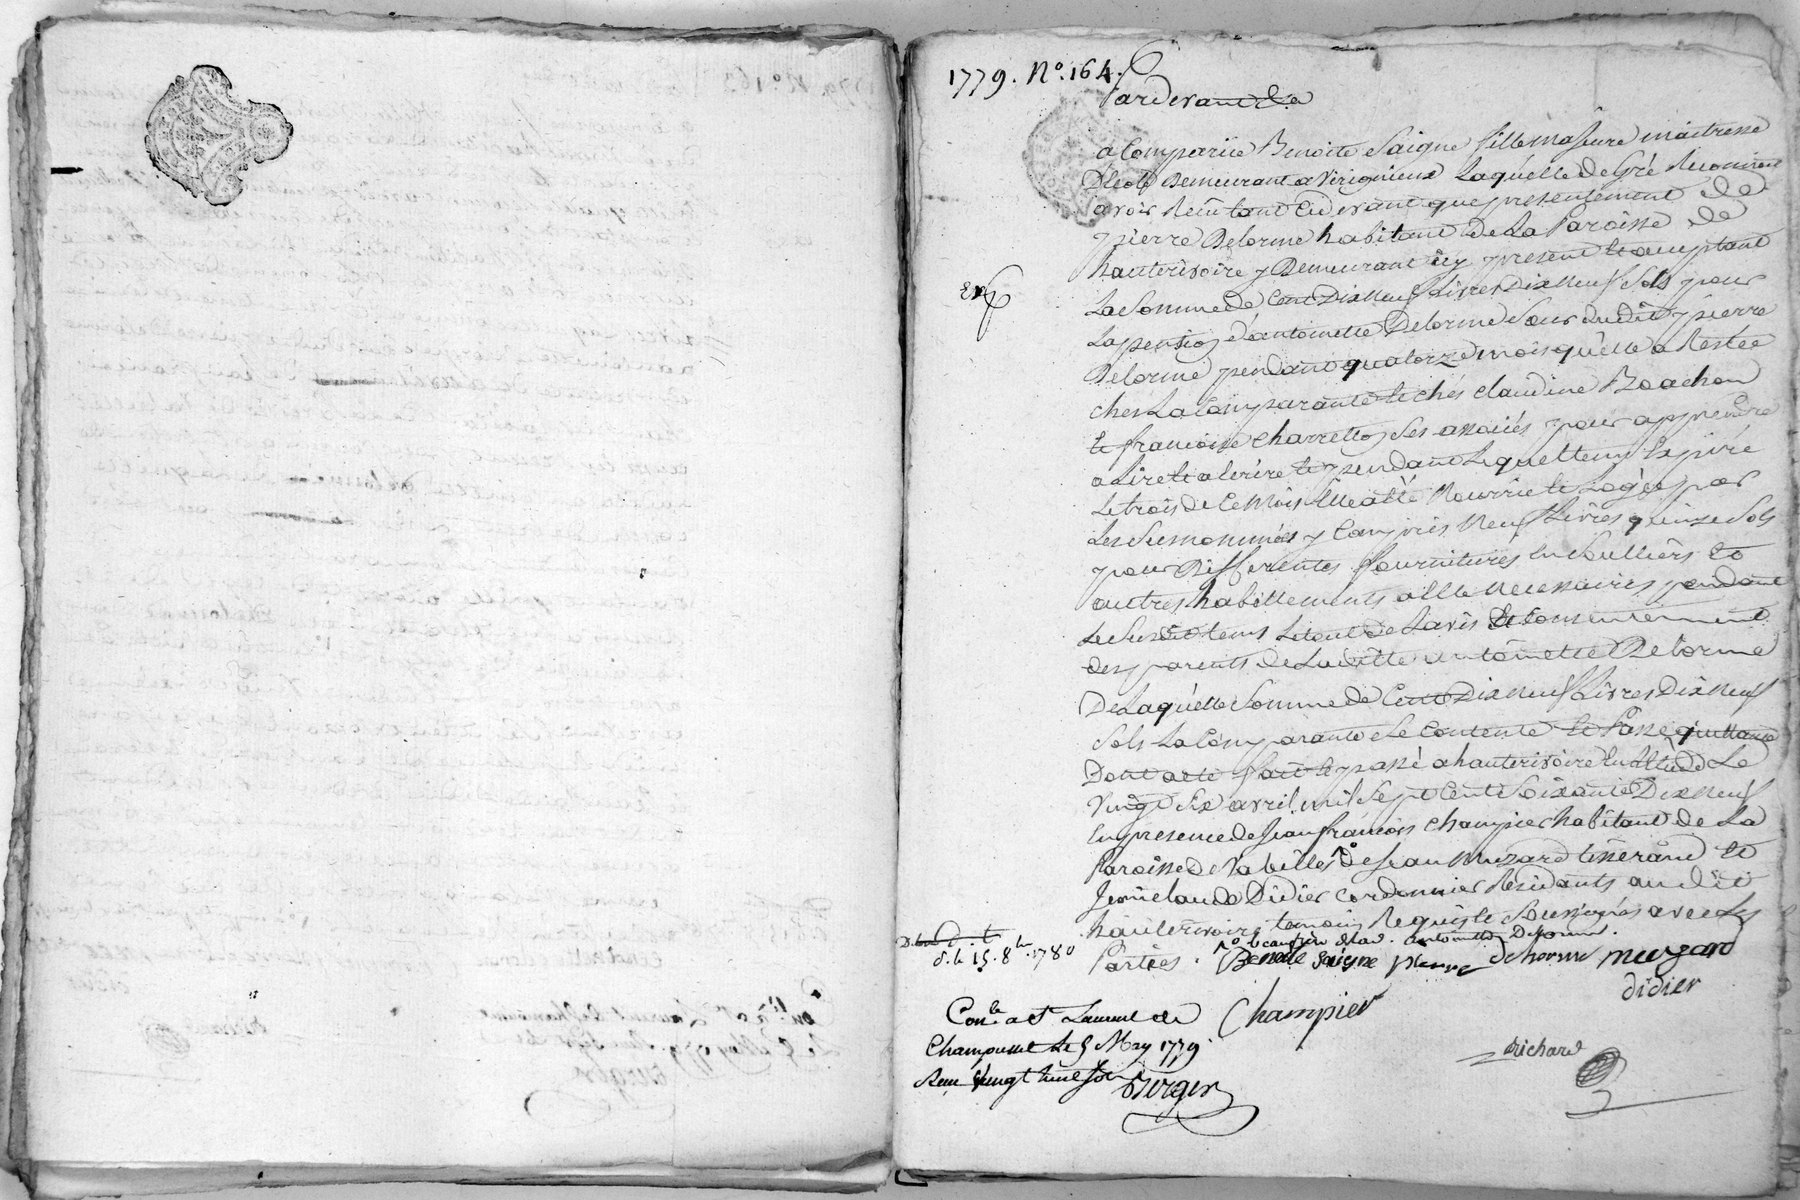 1779. N°. 164.
Pardevant &a
a Comparüe Benoite Saigne fille majeure maitresse
D'Ecole Demeurant a Virigneux Laquelle de Gré Reconnoit
avoir Reçû tant Cidevant que presentement de
pierre Delorme habitant de La Paroisse de
hauterivoire y Demeurant icy present et acceptant
La Somme de Cent Dix Neuf Livres Dix Neuf Sols pour
La pension d'antoinette Delorme Sœur dudit pierre
Delorme pendant quatorze mois qu'elle a Restée
chez La Comparante et chés claudine Boachon
et francoise charretton Ses associés pour apprendre
a Lire et a Ecrire et pendant Lequel tems Expiré
Le trois de Ce Mois Elle a été Nourrie et Logée par
Les Susnommées y Compris Neuf Livres quinze Sols
pour Differentes fournitures en Soulliers et
autres habillements a Elle Necessaires pendant
Le Susdit tems Le tout de Lavis et Consentement
des parents de Laditte antoinette Delorme
De Laquelle Somme de Cent Dix Neuf Livres Dix Neuf
Sols La Comparante Se Contente et Passe quittance
Dont acte fait et passé a hauterivoire En Etude Le
Vingt Six avril mil Sept Cent Soixante Dix Neuf
En presence de Jean francois Champier habitant de La
Paroisse de De Jean Muzard tisserand et
Jean claude Didier Cordonnier Résidants audit
hauterivoire temoins Requis et Soussignés avec Les
Parties.
Exp
d. le 15. 8bre. 1780
antoinette Delorme.
Benoite Saigne pierre Delorme muzard
didier
Champier
Conlé a St Laurent de
Chamousset Le 5 May 1779
Reçu Vingt huit Sols
Berger
Richard